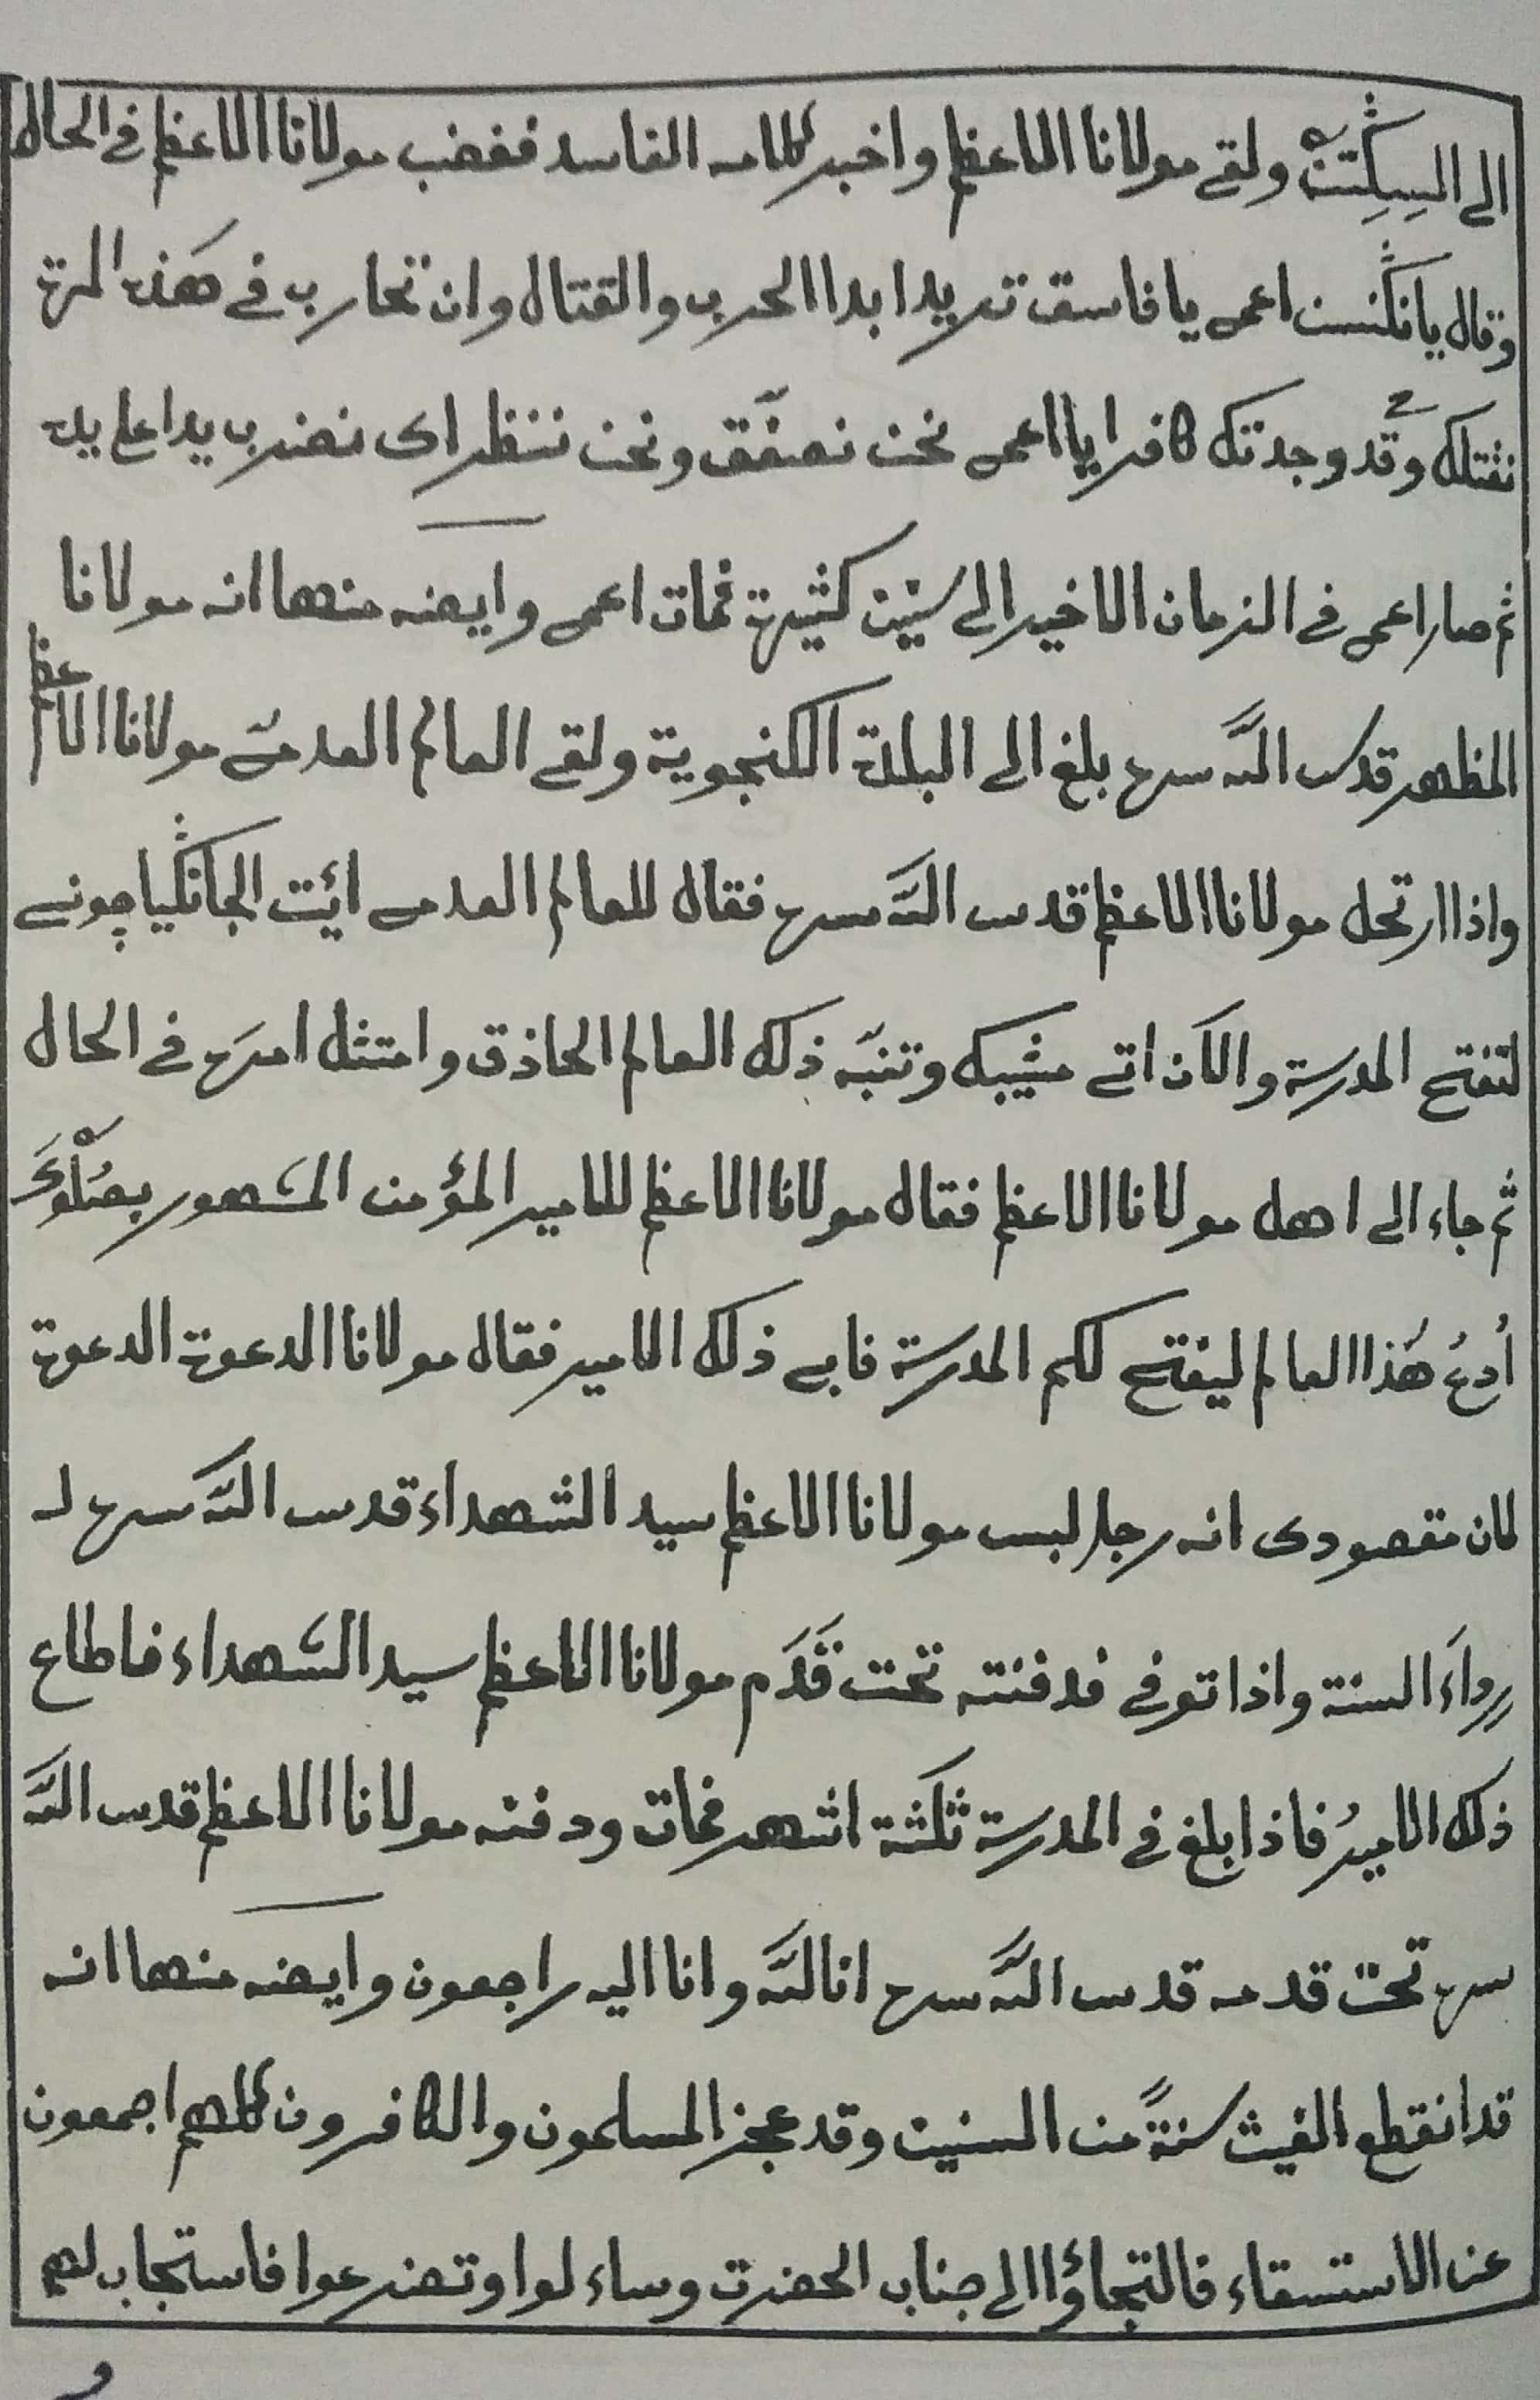 الى ولقى مولانا الاعظم واخبر كلامه الفاسد فغضب مولانا الاعظم فى الحال
وقال يا اعمى يا فاسق تريد ابدا الحرب والقتال وان تحارب فى هذه المرة
نقتلك وقد وجدتك كافرا يا اعمى نحن نصفّق ونحن ننظر اى نضرب يدا على يد
ثم صار اعمى فى الزمان الاخير الى سنين كثيرة فمات اعمى وايضه منها انه مولانا
المظهر قدس الله سره بلغ الى البلدة الكنجوية ولقى العالم العدمىّ مولانا الاعظم
واذا ارتحل مولانا الاعظم قدس الله سره فقال للعالم العدمى ائت
لتفتح المدرسة والآن اتى مشيبك وتنبّه ذلك العالم الحاذق وامتثل امره فى الحال
ثم جاء الى اهل مولانا الاعظم فقال مولانا الاعظم للامير المؤمن المشهور
أدعُ هٰذا العالم ليفتح لكم المدرسة فابى ذلك الامير فقال مولانا الدعوة الدعوة
لان مقصودى انه رجل لبس مولانا الاعظم سيد الشهداء قدس الله سره لـ
رداءَ السنة واذا توفى فدفنته تحت قَدَم مولانا الاعظم سيد الشهداء فاطاع
ذلك الاميرُ فاذا بلغ فى المدرسة ثلٰثة اشهر فمات ودفنه مولانا الاعظم قدس الله
سره تحت قدمه قدس الله سره انا لله وانا اليه راجعون وايضه منها انه
قد انقطع الغيث سنةً من السنين وقد عجز المسلمون والكافرون كلهم اجمعون
عن الاستسقاء فالتجاؤا الى جناب الحضرة وساءلوا وتضرعوا فاستجاب لهم
و